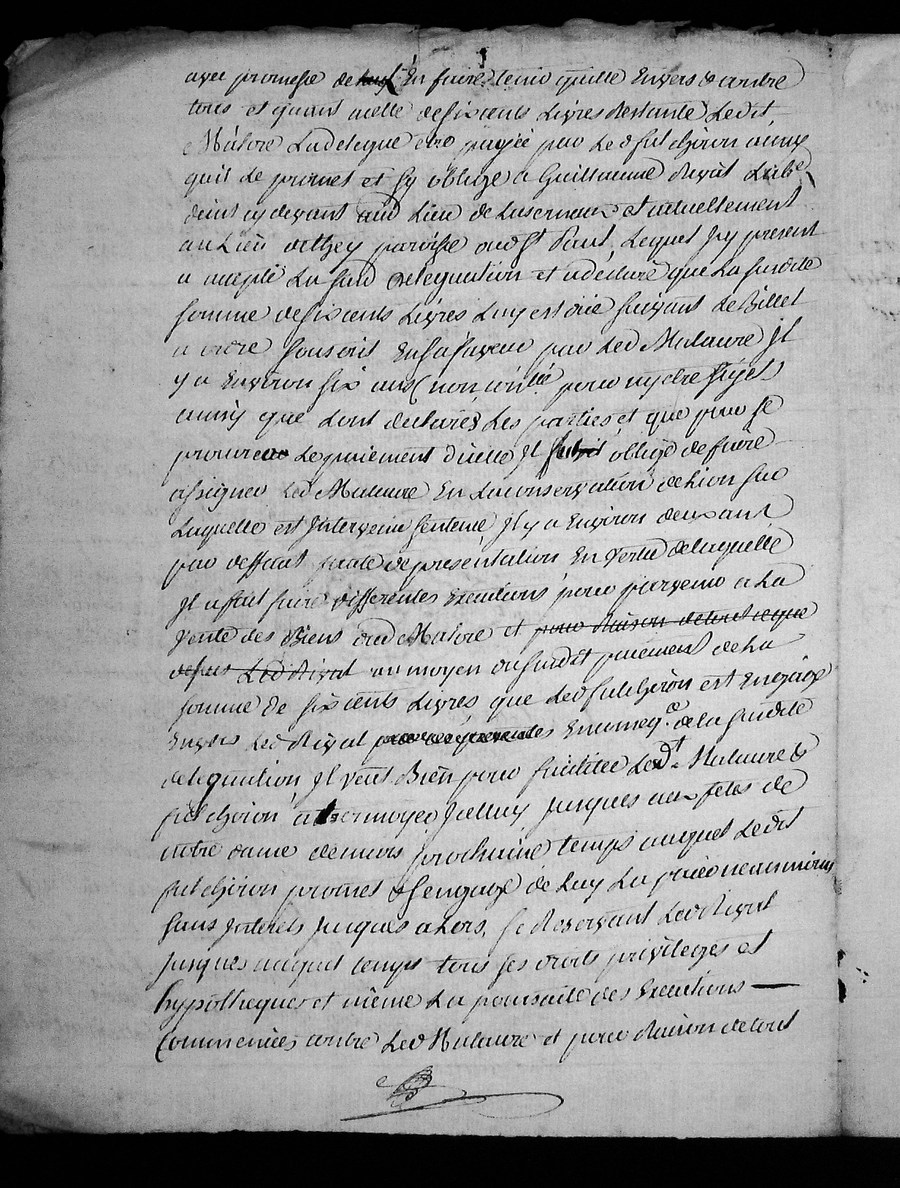 avec promesse de l'en faire tenir quitte envers & contre
tous et quant a celle de six cents Livres restante Ledit
Malore La delegue etre payée par Led fulchiron ainsy
quil Le promet et sy oblige a Guillaume Rivat
cy devant aud Lieu de et actuellement
au Lieu parroisse dud St Paul, Lequel Jcy present
a accepté La susd delegation et a declaré que La susdite
somme de six cents Livres Luy est düe suivant Le Billet
a ordre souscrit En sa faveur par Led Malaure Jl
y a Environ six ans (non contlé pour ny etre sujet
ainsy que Lont declarés Les parties et que pour se
procurer Le paiement dicelle Jl fut obligé de faire
assigner Led Malaure En La conservation de Lion sur
Laquelle est Intervenu sentence Jl y a Environ deux ans
par deffaut faute de presentation En vertu de laquelle
Jl a fait faire differentes Executions pour parvenir a La
vente des Biens dud Malore et pour Raison de tout ce que
dessus Led Rivat au moyen du susdit paiement de La
somme de six cents Livres que Led fulchiron est Engagé
Envers Led Rivat par ces presentes En conseqce de la susdite
delegation, Jl veut Bien pour faciliter Ledt Malaure &
fulchiron attermoyer Jcelluy Jusques aux fetes de
notre dame de mars prochaine temps auquel Ledit
fulchiron promet & s'engage de Luy La paier neanmoins
sans Jnterets Jusques alors, se Reservant Led Rivat
Jusques auquel temps tous ses droits privileges et
hypotheques et même La poursuite des Executions —
Commencées contre Led Malaure et pour Raison de tout